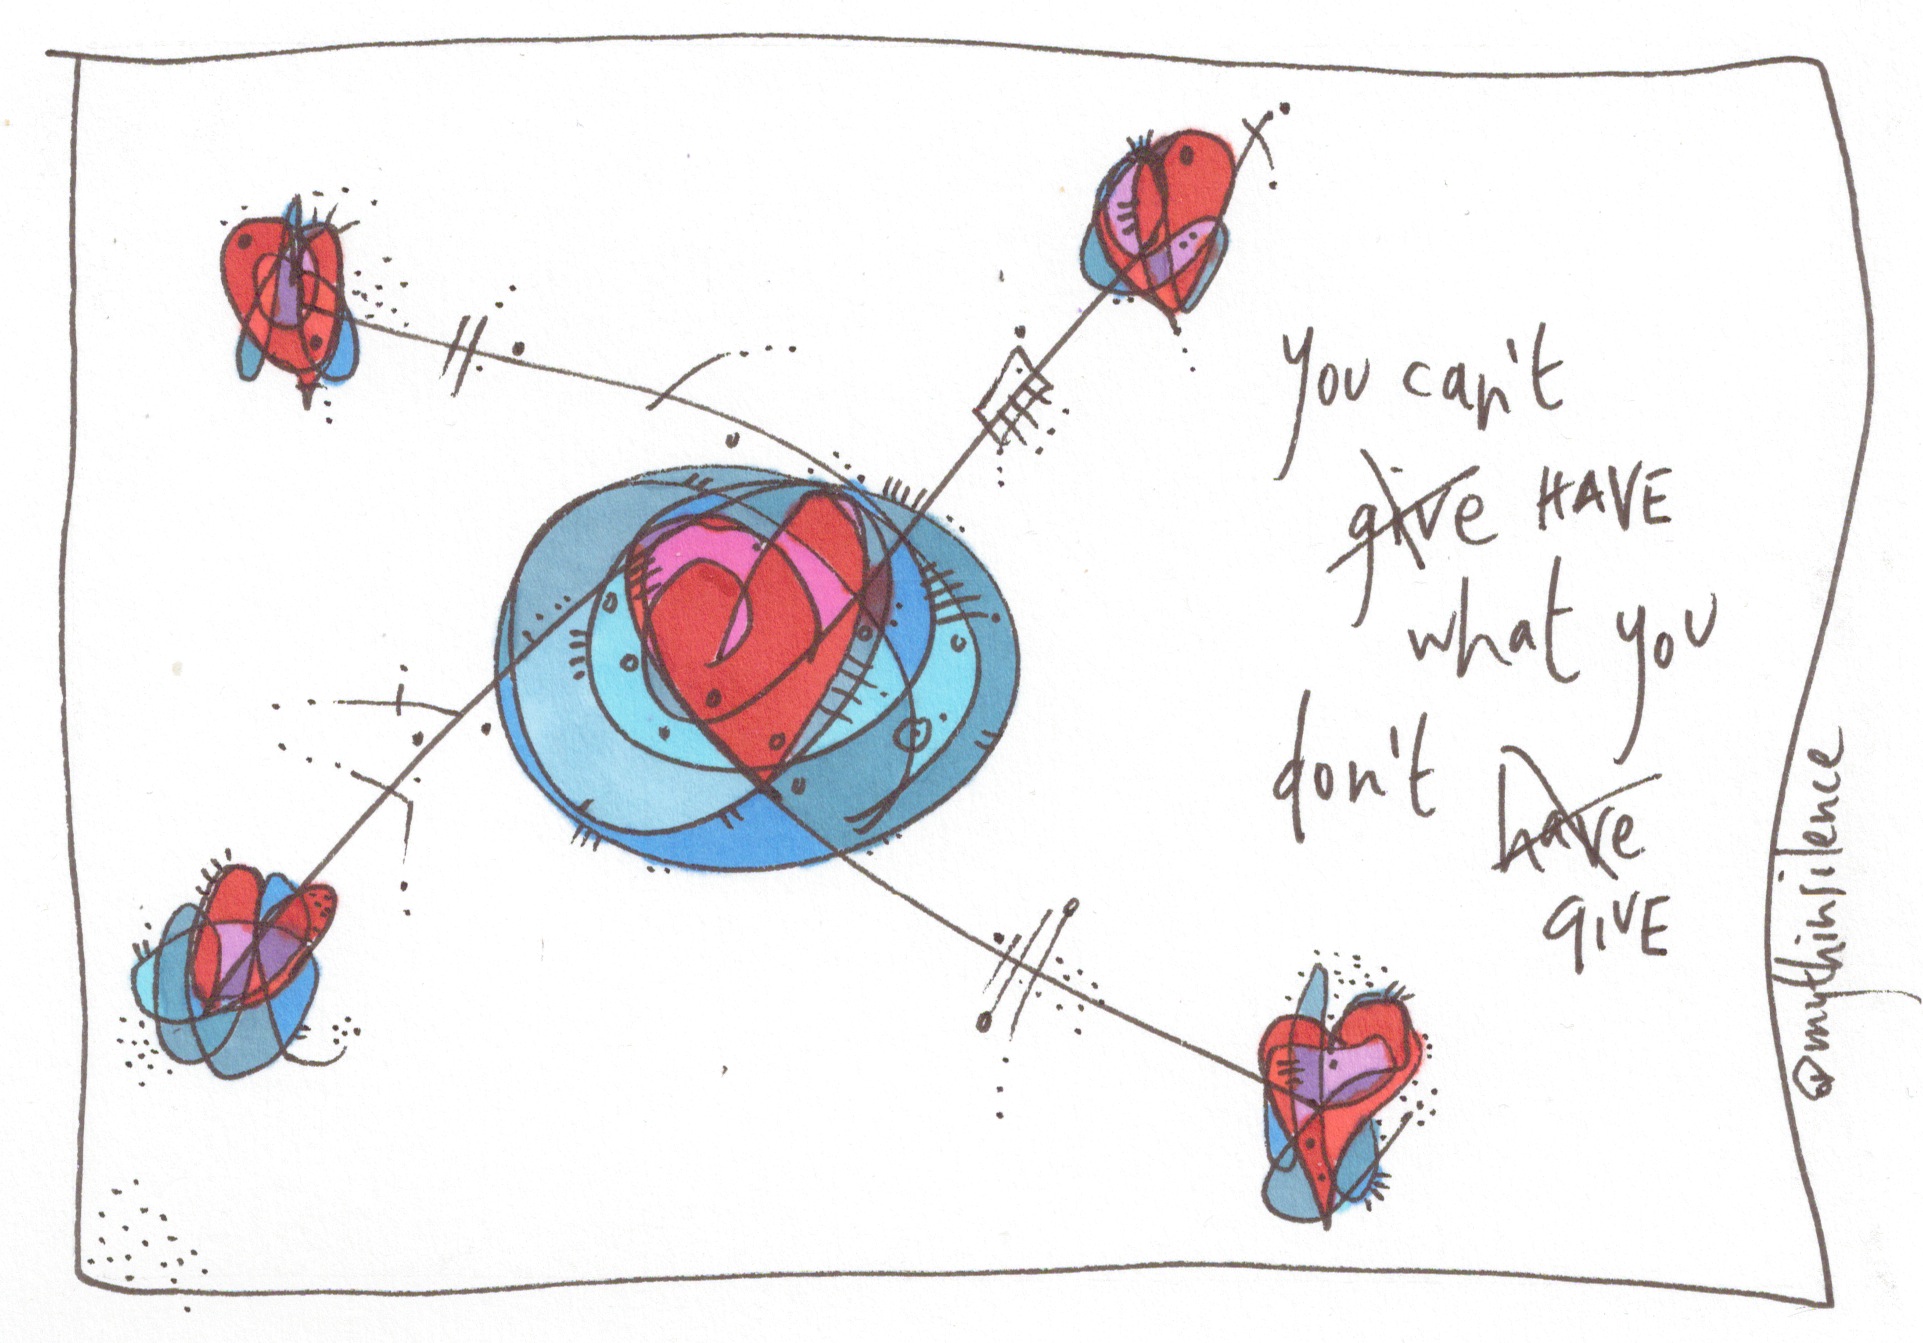 you can't
give HAVE
what you
don't have
GIVE
@mythinsilence